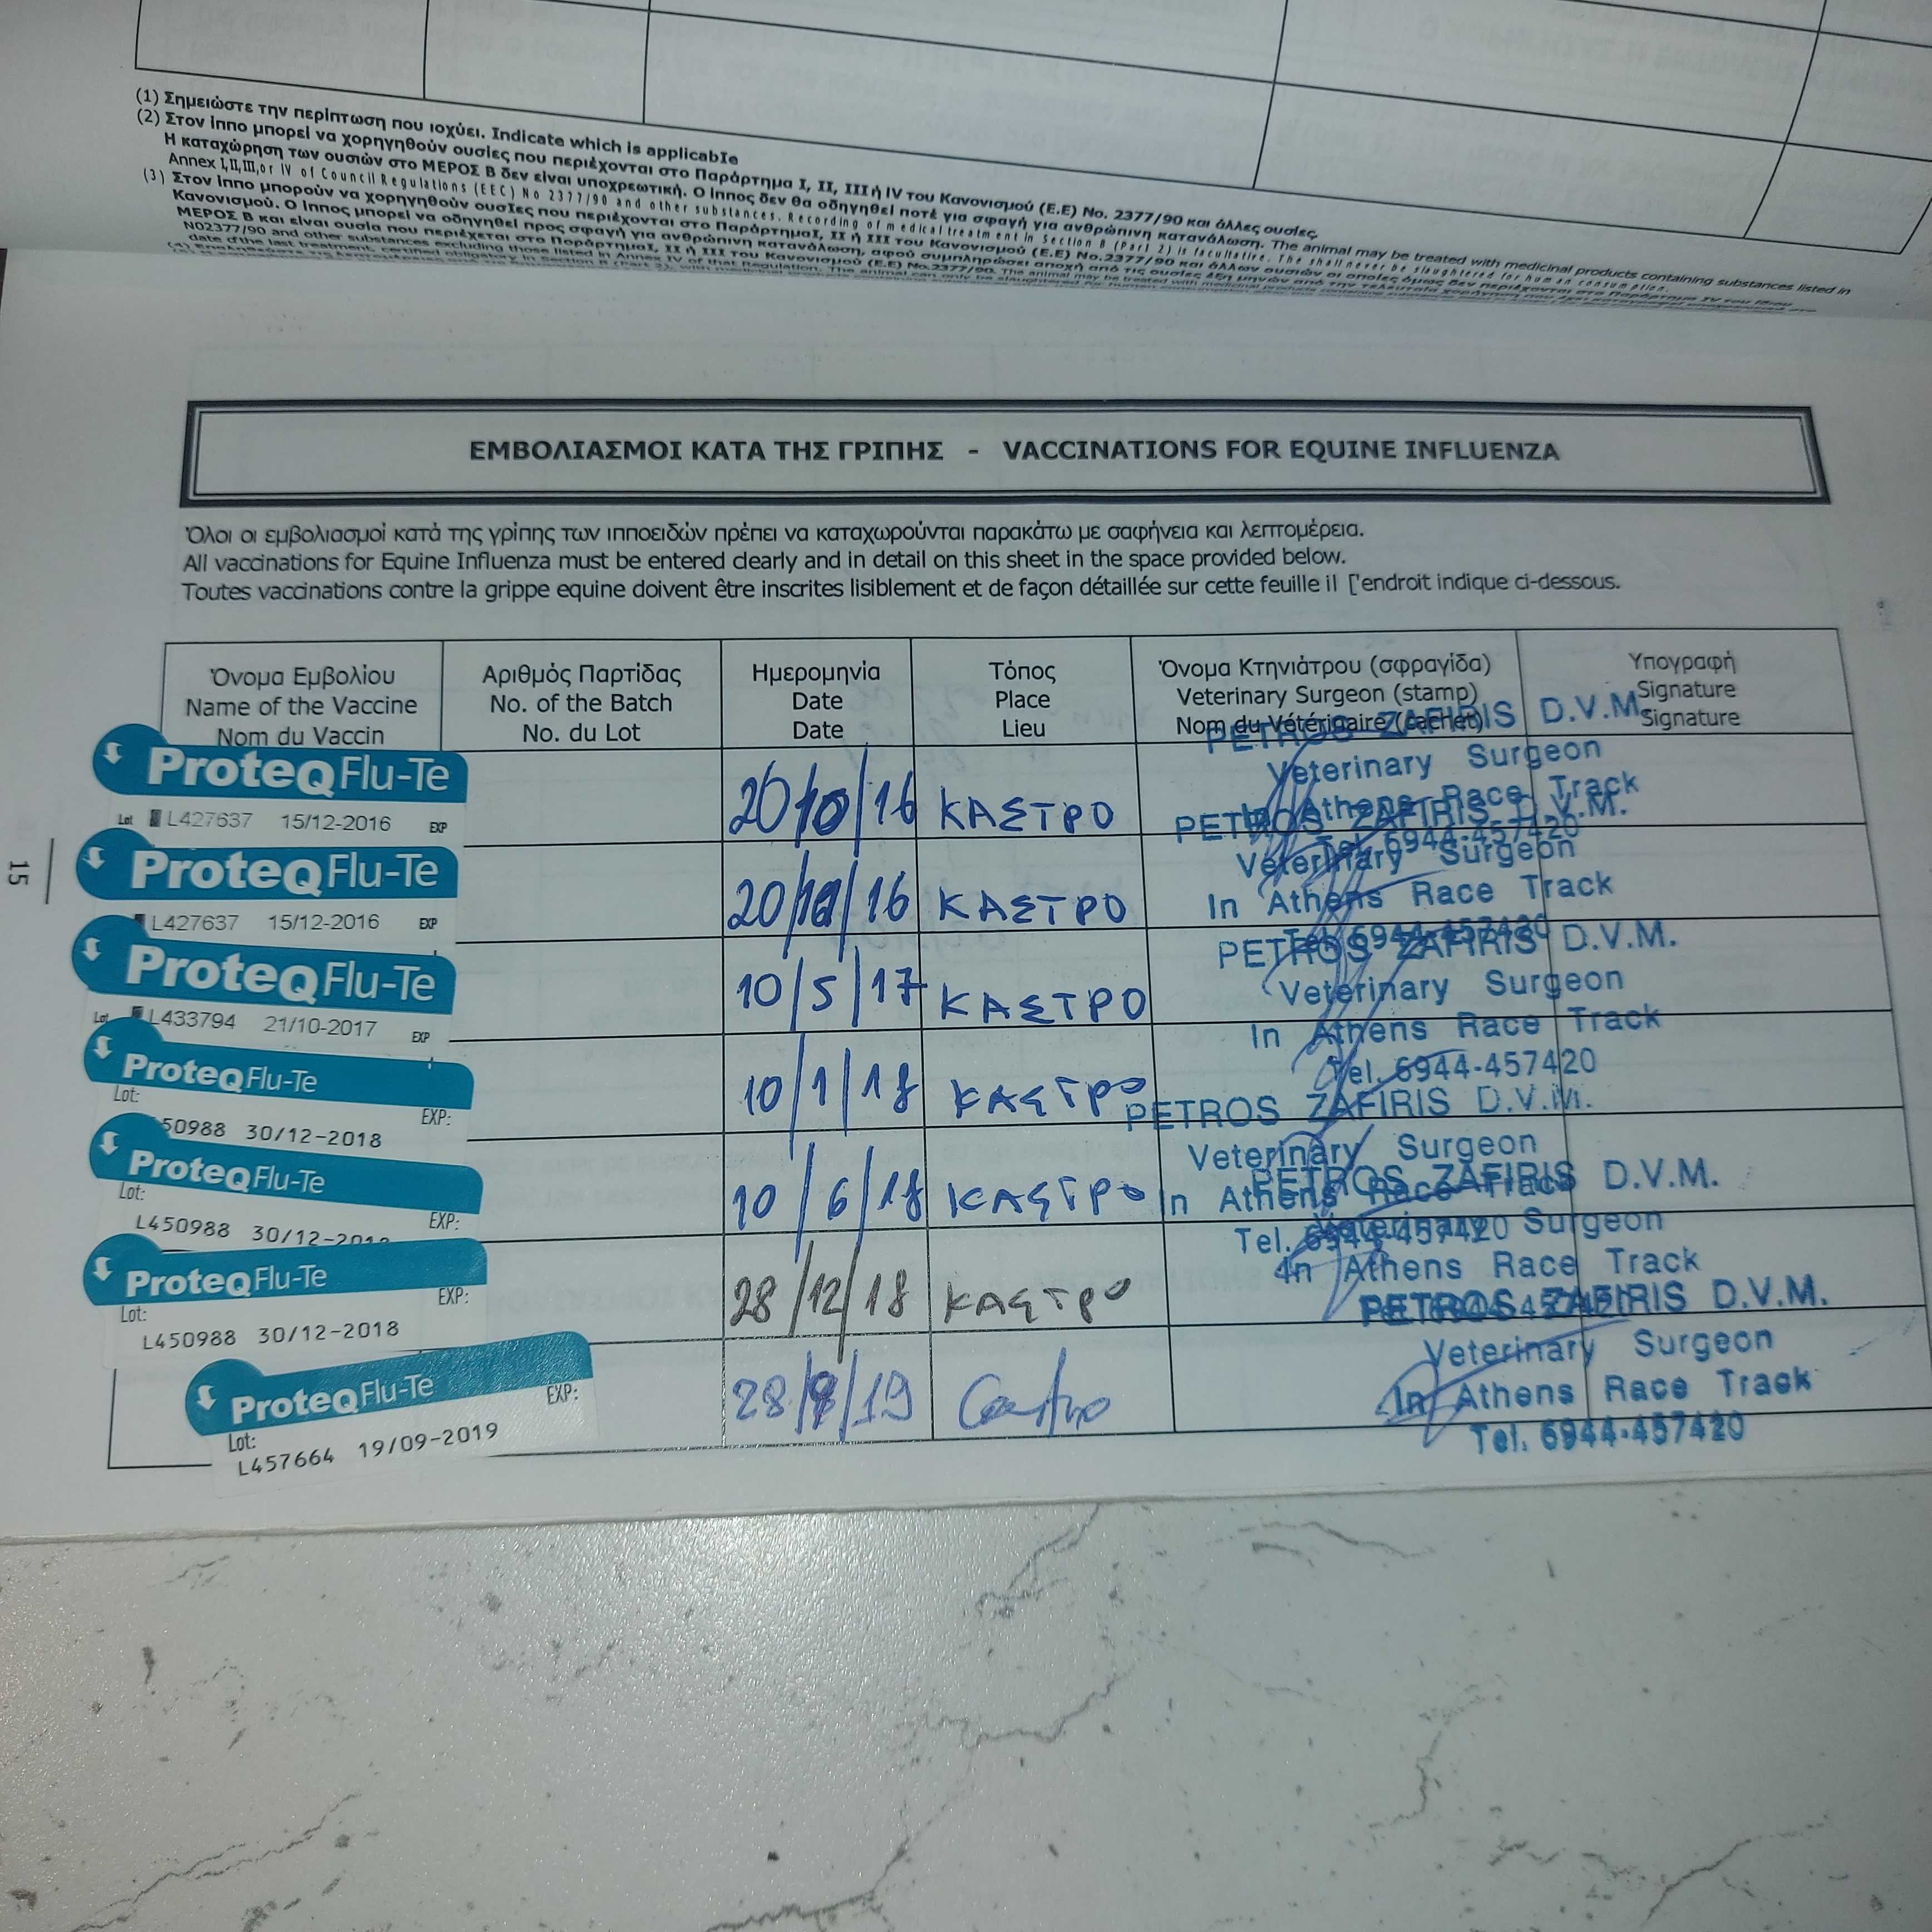 (1) Σημειώστε την περίπτωση που ισχύει. Indicate which is applicable
(2) Στον ίππο μπορεί να χορηγηθούν ουσίες που περιέχονται στο Παράρτημα I, II, III ή IV του Κανονισμού (Ε.Ε) No. 2377/90 και άλλες ουσίες.
Η καταχώρηση των ουσιών στο ΜΕΡΟΣ Β δεν είναι υποχρεωτική. Ο ίππος δεν θα οδηγηθεί ποτέ για σφαγή για ανθρώπινη κατανάλωση. The animal may be treated with medicinal products containing substances listed in
Annex I,II,III,or IV of Council Regulations (EEC) No 2377/90 and other substances. Recording of medical treatment in Section B (Part 2) is facultative. The shall never be slaughtered for human consumption.
(3) Στον ίππο μπορούν να χορηγηθούν ουσίες που περιέχονται στο ΠαράρτημαI, II ή III του Κανονισμού (Ε.Ε) No.2377/90 και άλλων ουσιών οι οποίες όμως δεν περιέχονται στο Παράρτημα IV του ίδιου
Κανονισμού. Ο ίππος μπορεί να οδηγηθεί προς σφαγή για ανθρώπινη κατανάλωση, αφού συμπληρώσει αποχή από τις ουσίες
ΜΕΡΟΣ Β και είναι ουσία που περιέχεται στο ΠαράρτημαI, II ή III του Κανονισμού (Ε.Ε) No.2377/90. The animal may be treated with medicinal
NO2377/90 and other substances excluding those listed in Annex IV of that Regulation. The animal
date of the last treatment, certified obligatory in Section B (Part 2),
15
ΕΜΒΟΛΙΑΣΜΟΙ ΚΑΤΑ ΤΗΣ ΓΡΙΠΗΣ - VACCINATIONS FOR EQUINE INFLUENZA
Όλοι οι εμβολιασμοί κατά της γρίπης των ιπποειδών πρέπει να καταχωρούνται παρακάτω με σαφήνεια και λεπτομέρεια.
All vaccinations for Equine Influenza must be entered clearly and in detail on this sheet in the space provided below.
Toutes vaccinations contre la grippe equine doivent être inscrites lisiblement et de façon détaillée sur cette feuille il ['endroit indique ci-dessous.
Όνομα Εμβολίου
Name of the Vaccine
Nom du Vaccin
Αριθμός Παρτίδας
No. of the Batch
No. du Lot
Ημερομηνία
Date
Date
Τόπος
Place
Lieu
Όνομα Κτηνιάτρου (σφραγίδα)
Veterinary Surgeon (stamp)
Nom du Vétérinaire (cachet)
Υπογραφή
Signature
Signature
ProteqFlu-Te
Lot L427637 15/12-2016 EXP
20/10/16 ΚΑΣΤΡΟ
PETROS ZAFIRIS D.V.M.
Veterinary Surgeon
In Athens Race Track
Tel. 6944-457420
ProteqFlu-Te
L427637 15/12-2016 EXP
20/ /16 ΚΑΣΤΡΟ
PETROS ZAFIRIS D.V.M.
Veterinary Surgeon
In Athens Race Track
Tel. 6944-457420
ProteqFlu-Te
Lot L433794 21/10-2017 EXP
10/5/17 ΚΑΣΤΡΟ
PETROS ZAFIRIS D.V.M.
Veterinary Surgeon
In Athens Race Track
Tel. 6944-457420
ProteqFlu-Te
Lot: EXP:
50988 30/12-2018
10/1/18 ΚΑΣΤΡΟ
PETROS ZAFIRIS D.V.M.
Veterinary Surgeon
In Athens Race Track
Tel. 6944-457420
ProteqFlu-Te
Lot: EXP:
L450988 30/12-2018
10/6/18 ΚΑΣΤΡΟ
PETROS ZAFIRIS D.V.M.
Veterinary Surgeon
In Athens Race Track
ProteqFlu-Te
Lot: EXP:
L450988 30/12-2018
28/12/18 ΚΑΣΤΡΟ
PETROS ZAFIRIS D.V.M.
Veterinary Surgeon
In Athens Race Track
Tel. 6944-457420
ProteqFlu-Te
Lot: EXP:
L457664 19/09-2019
28/ /19 Castro